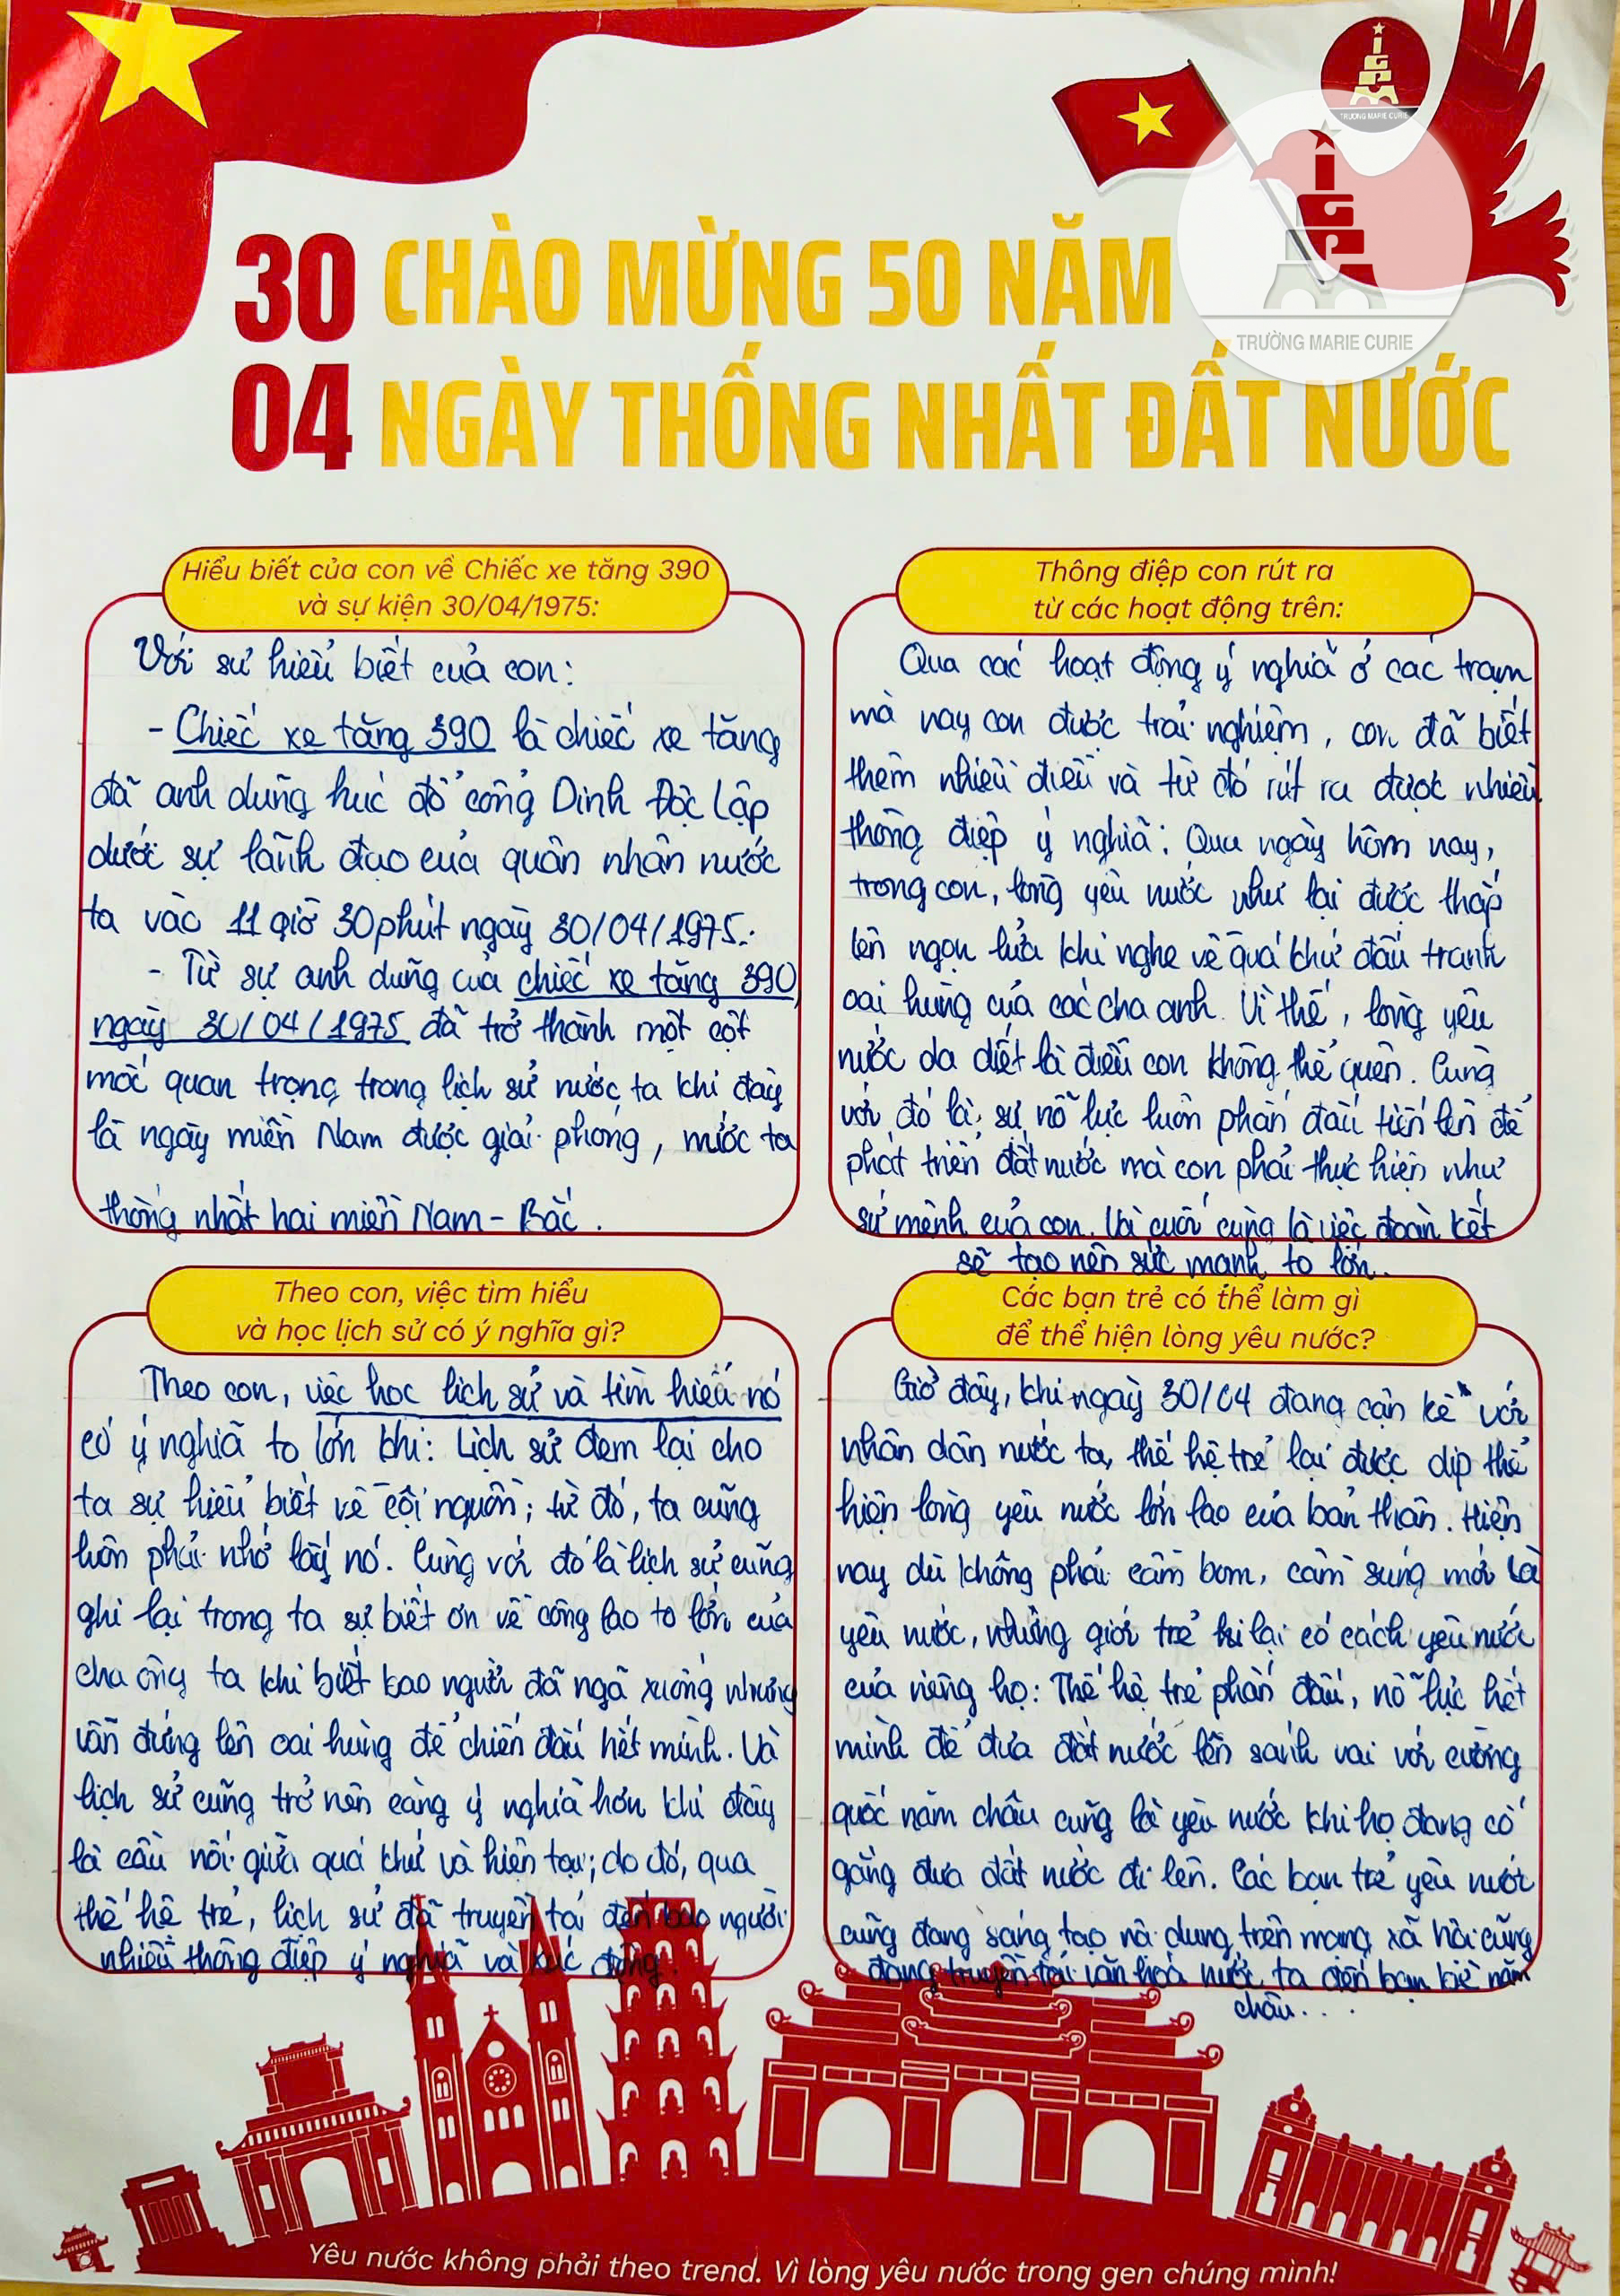 TRƯỜNG MARIE CURIE
TRƯỜNG MARIE CURIE
30 CHÀO MỪNG 50 NĂM
04 NGÀY THỐNG NHẤT ĐẤT NƯỚC
Hiểu biết của con về Chiếc xe tăng 390
và sự kiện 30/04/1975:
Với sự hiểu biết của con:
- Chiếc xe tăng 390 là chiếc xe tăng
đã anh dũng húc đổ cổng Dinh Độc Lập
dưới sự lãnh đạo của quân nhân nước
ta vào 11 giờ 30 phút ngày 30/04/1975.
- Từ sự anh dũng của chiếc xe tăng 390,
ngày 30/04/1975 đã trở thành một cột
mốc quan trọng trong lịch sử nước ta khi đây
là ngày miền Nam được giải phóng, nước ta
thống nhất hai miền Nam - Bắc.
Thông điệp con rút ra
từ các hoạt động trên:
Qua các hoạt động ý nghĩa ở các trạm
mà nay con được trải nghiệm, con đã biết
thêm nhiều điều và từ đó rút ra được nhiều
thông điệp ý nghĩa: Qua ngày hôm nay,
trong con, lòng yêu nước như lại được thắp
lên ngọn lửa khi nghe về quá khứ đấu tranh
oai hùng của các cha anh. Vì thế, lòng yêu
nước da diết là điều con không thể quên. Cùng
với đó là sự nỗ lực luôn phấn đấu tiến lên để
phát triển đất nước mà con phải thực hiện như
sứ mệnh của con. Và cuối cùng là việc đoàn kết
sẽ tạo nên sức mạnh to lớn.
Theo con, việc tìm hiểu
và học lịch sử có ý nghĩa gì?
Theo con, việc học lịch sử và tìm hiểu nó
có ý nghĩa to lớn khi: Lịch sử đem lại cho
ta sự hiểu biết về cội nguồn; từ đó, ta cũng
luôn phải nhớ lấy nó. Cùng với đó là lịch sử cũng
ghi lại trong ta sự biết ơn về công lao to lớn của
cha ông ta khi biết bao người đã ngã xuống nhưng
vẫn đứng lên oai hùng để chiến đấu hết mình. Và
lịch sử cũng trở nên càng ý nghĩa hơn khi đây
là cầu nối giữa quá khứ và hiện tại; do đó, qua
thế hệ trẻ, lịch sử đã truyền tải đến bao người
nhiều thông điệp ý nghĩa và xúc động.
Các bạn trẻ có thể làm gì
để thể hiện lòng yêu nước?
Giờ đây, khi ngày 30/04 đang cận kề với
nhân dân nước ta, thế hệ trẻ lại được dịp thể
hiện lòng yêu nước lớn lao của bản thân. Hiện
nay dù không phải cầm bom, cầm súng mới là
yêu nước, nhưng giới trẻ lại có cách yêu nước
của riêng họ: Thế hệ trẻ phấn đấu, nỗ lực hết
mình để đưa đất nước lên sánh vai với cường
quốc năm châu cũng là yêu nước khi họ đang cố
gắng đưa đất nước đi lên. Các bạn trẻ yêu nước
cũng đang sáng tạo nội dung trên mạng xã hội cũng
đang truyền tải văn hoá nước ta đến bạn bè năm
châu...
Yêu nước không phải theo trend. Vì lòng yêu nước trong gen chúng mình!